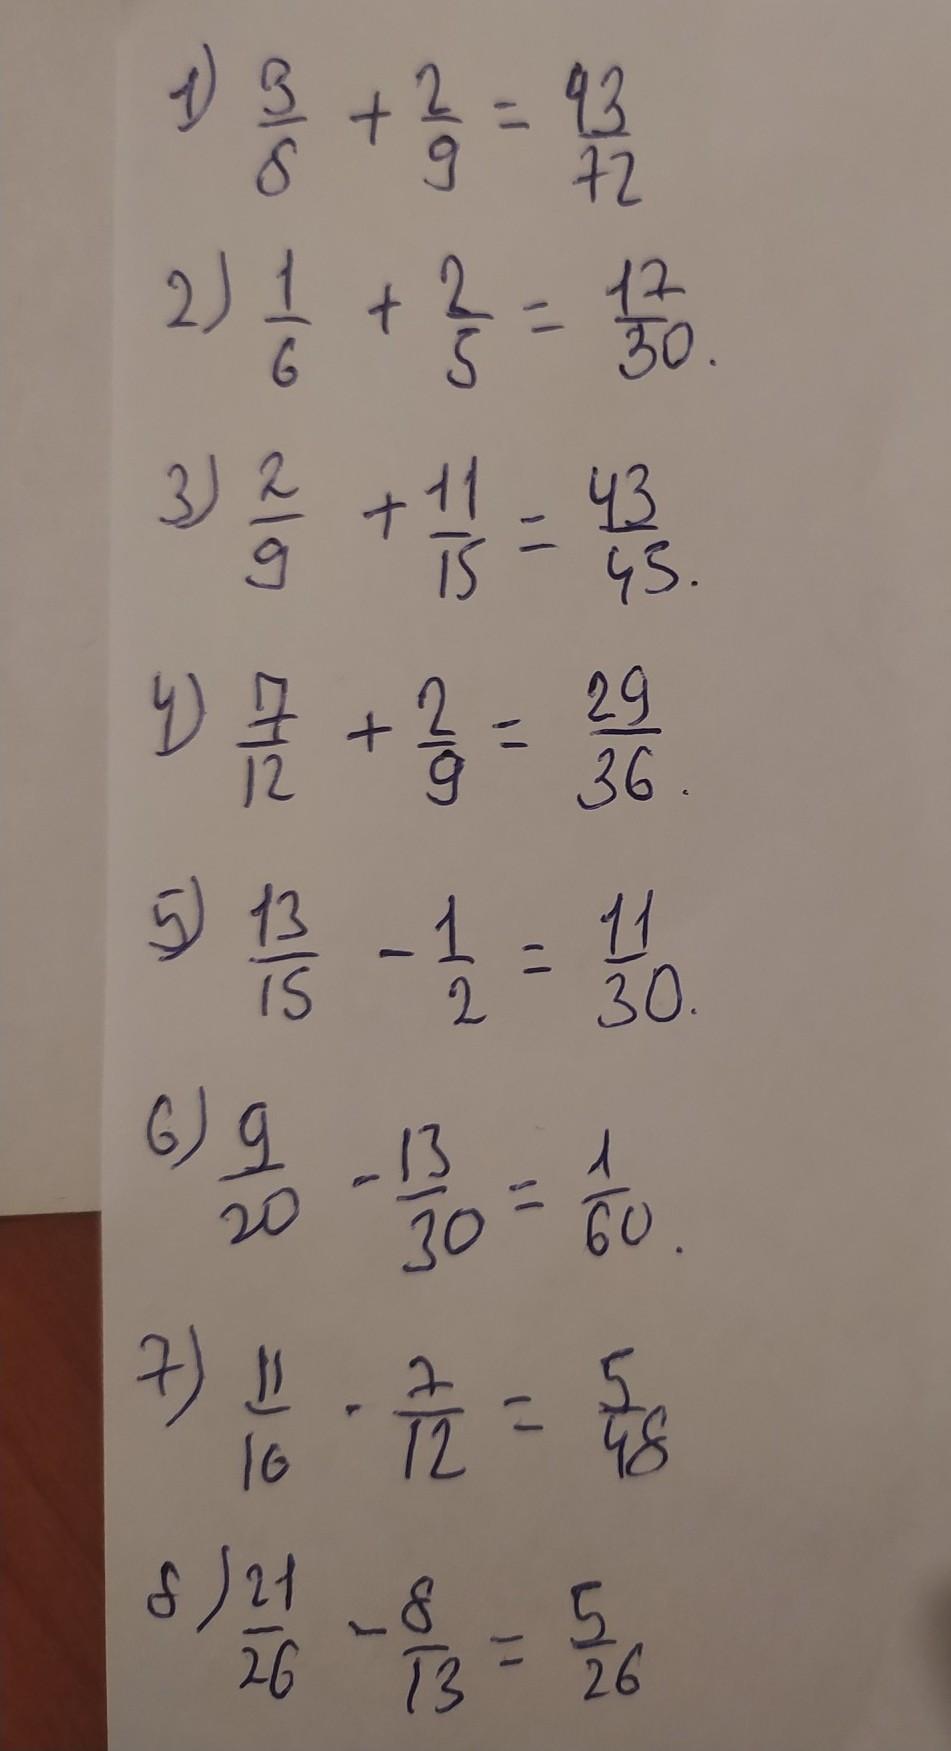 1) 3/8 + 2/9 = 43/72
2) 1/6 + 2/5 = 17/30.
3) 2/9 + 11/15 = 43/45.
4) 7/12 + 2/9 = 29/36.
5) 13/15 - 1/2 = 11/30.
6) 9/20 - 13/30 = 1/60.
7) 11/16 - 7/12 = 5/48
8) 21/26 - 8/13 = 5/26